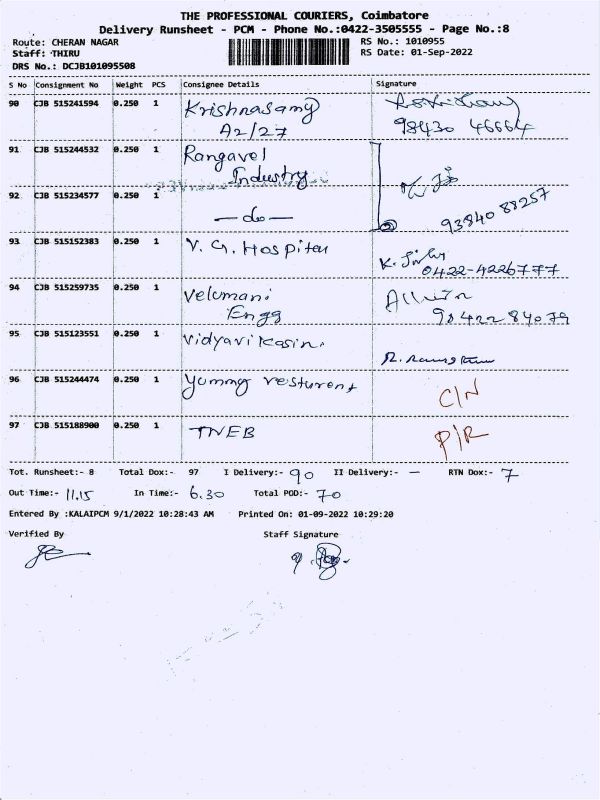 THE PROFESSIONAL COURIERS, Coimbatore
Delivery Runsheet - PCM - Phone No.:0422-3505555 - Page No.:8
Route: CHERAN NAGAR
RS No.: 1010955
Staff: THIRU
RS Date: 01-Sep-2022
DRS No.: DCJB101095508
S No Consignment No Weight PCS Consignee Details Signature
90 CJB 515241594 0.250 1 Krishnasamy
A2/27 98430 46664
91 CJB 515244532 0.250 1 Rangavel
Industry
92 CJB 515234577 0.250 1 — do — 93840 88257
93 CJB 515152383 0.250 1 V. G. Hospital
0422-4226777
94 CJB 515259735 0.250 1 Velumani
Engg 98422 84079
95 CJB 515123551 0.250 1
96 CJB 515244474 0.250 1 Yummy resturent C/N
97 CJB 515188900 0.250 1 TNEB P/R
Tot. Runsheet:- 8 Total Dox:- 97 I Delivery:- 90 II Delivery:- — RTN Dox:- 7
Out Time:- 11.15 In Time:- 6.30 Total POD:- 70
Entered By :KALAIPCM 9/1/2022 10:28:43 AM Printed On: 01-09-2022 10:29:20
Verified By Staff Signature